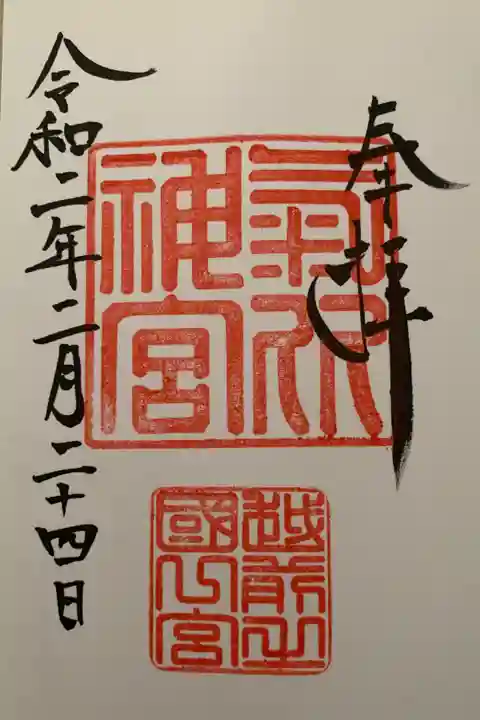 奉拝
氣比
神宮
越前之
國宮
令和二年二月二十四日